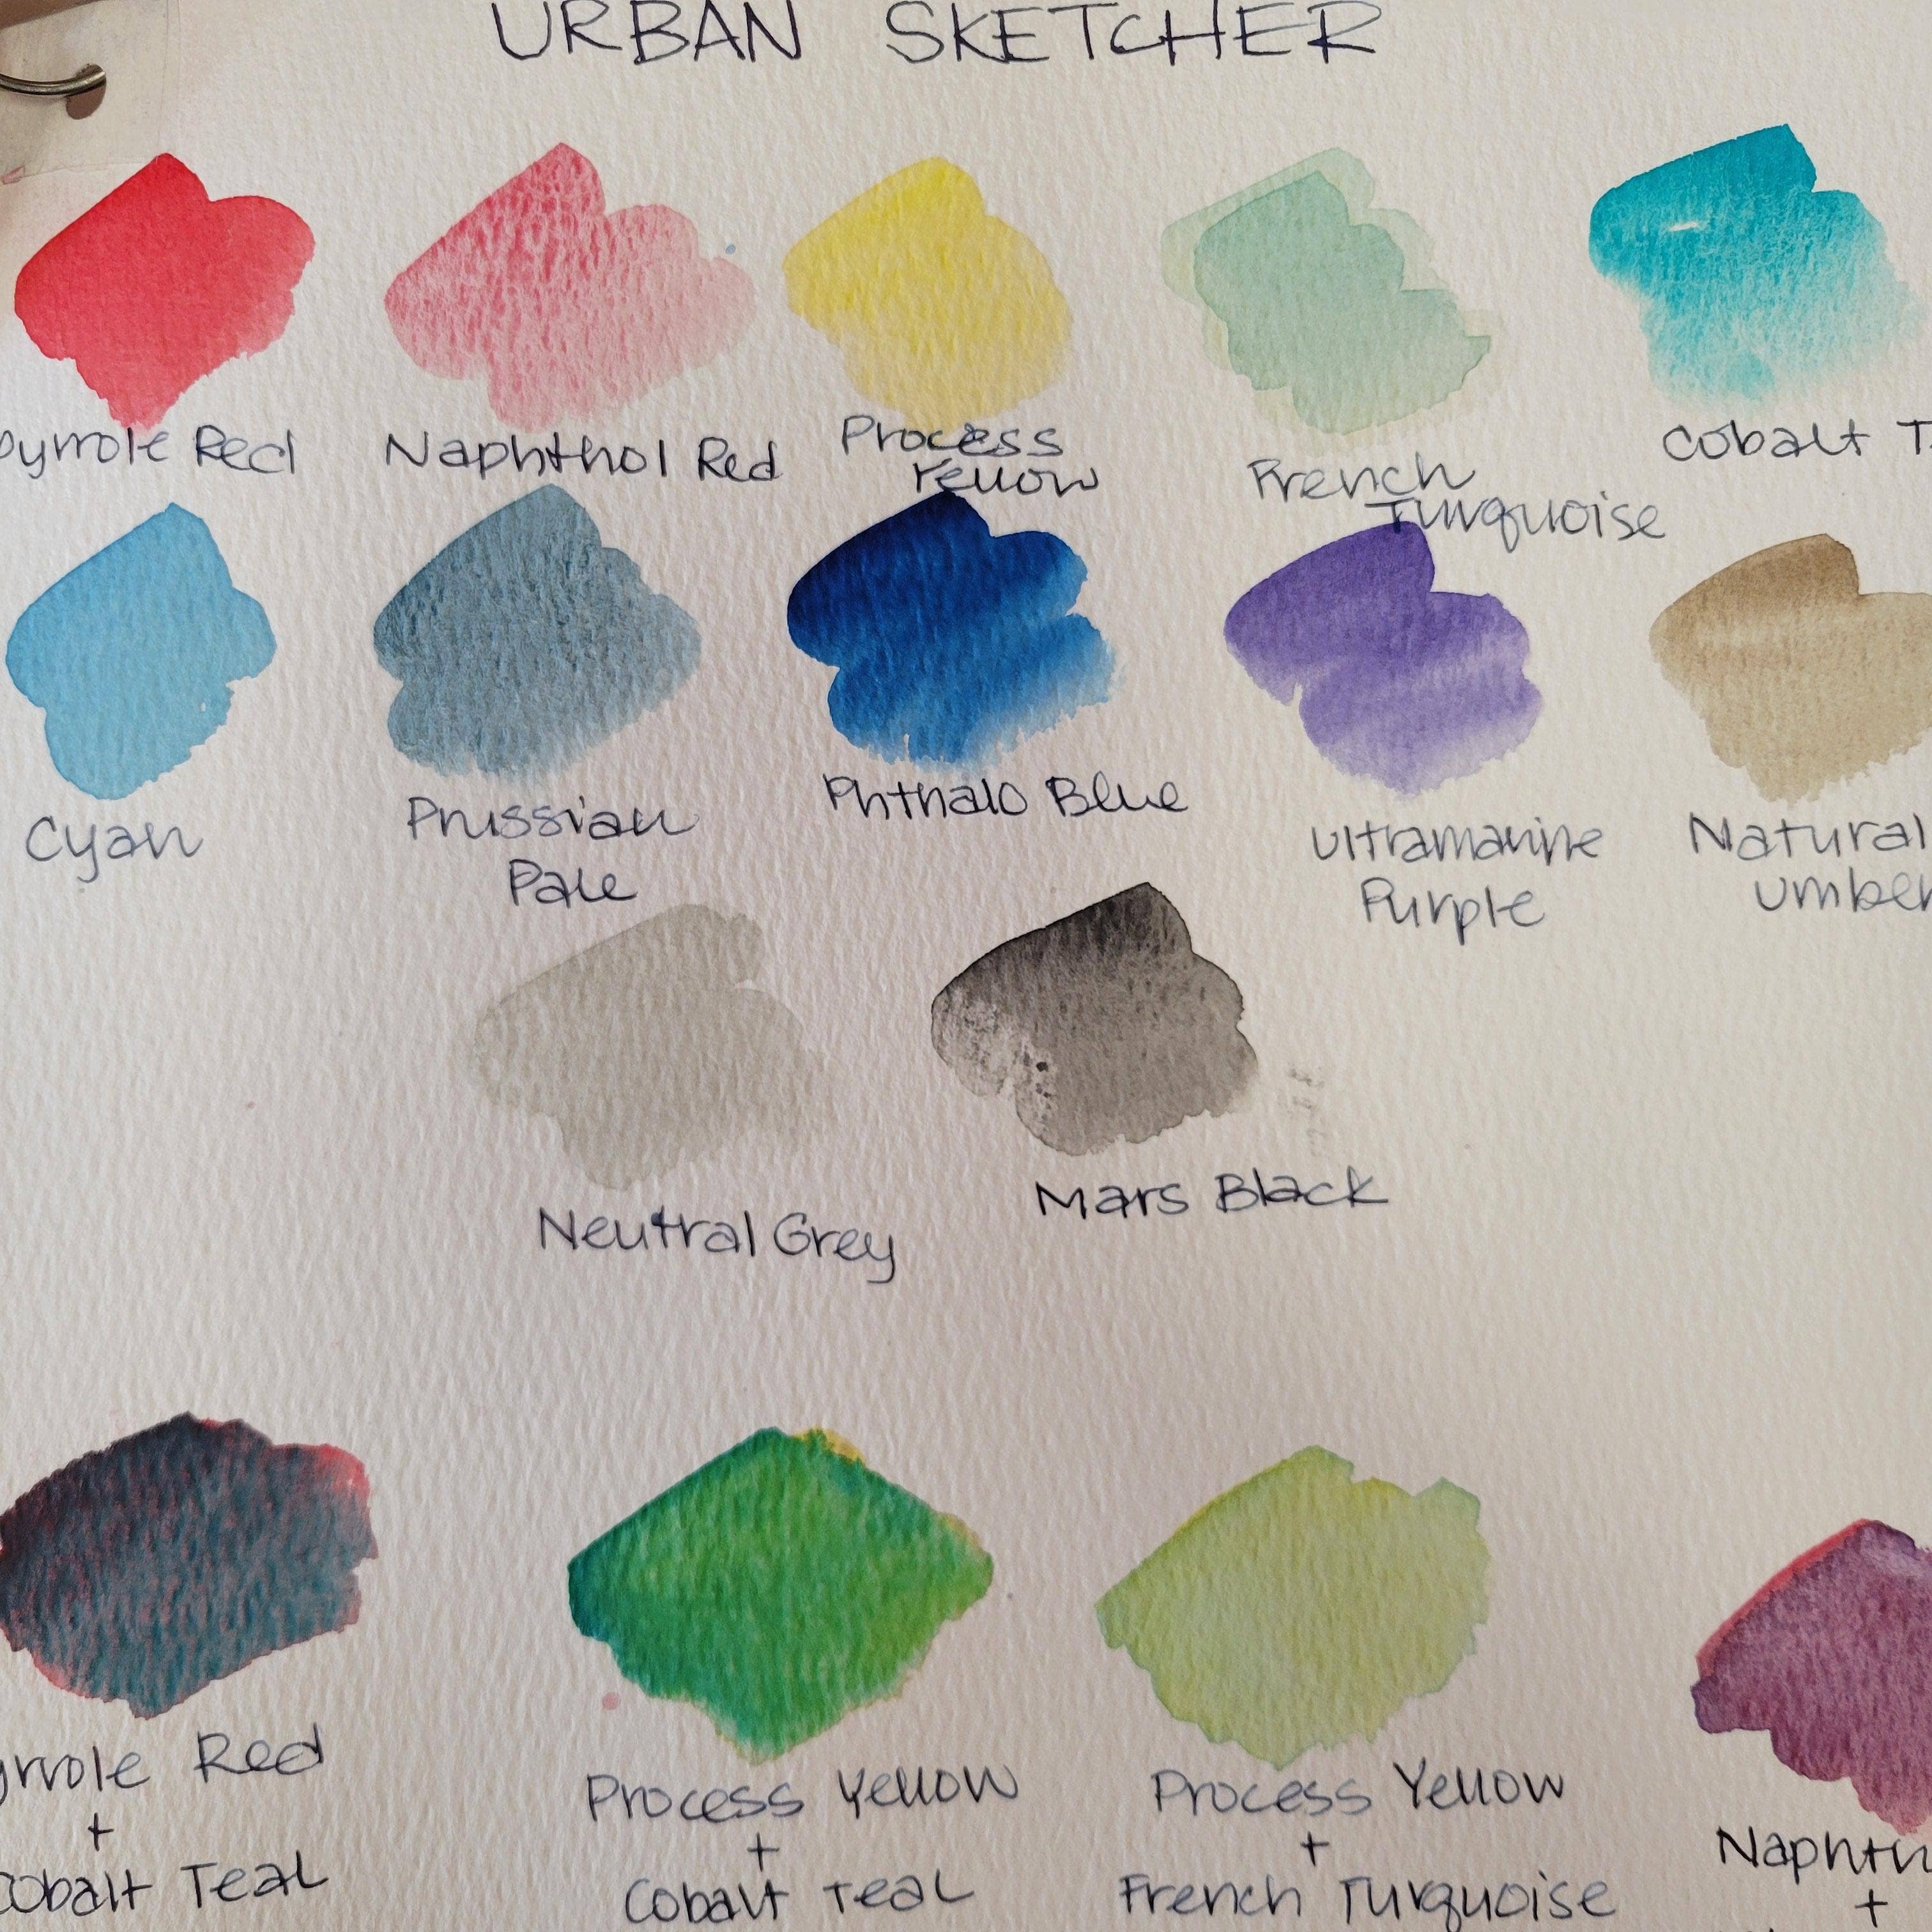 URBAN SKETCHER
pyrrole Red
Naphthol Red
Process
Yellow
French
Turquoise
Cobalt T
Cyan
Prussian
Pale
Phthalo Blue
Ultramarine
Purple
Natural
Umber
Neutral Grey
Mars Black
yrrole Red
+
Cobalt Teal
Process Yellow
+
Cobalt Teal
Process Yellow
+
French Turquoise
Naphth
+